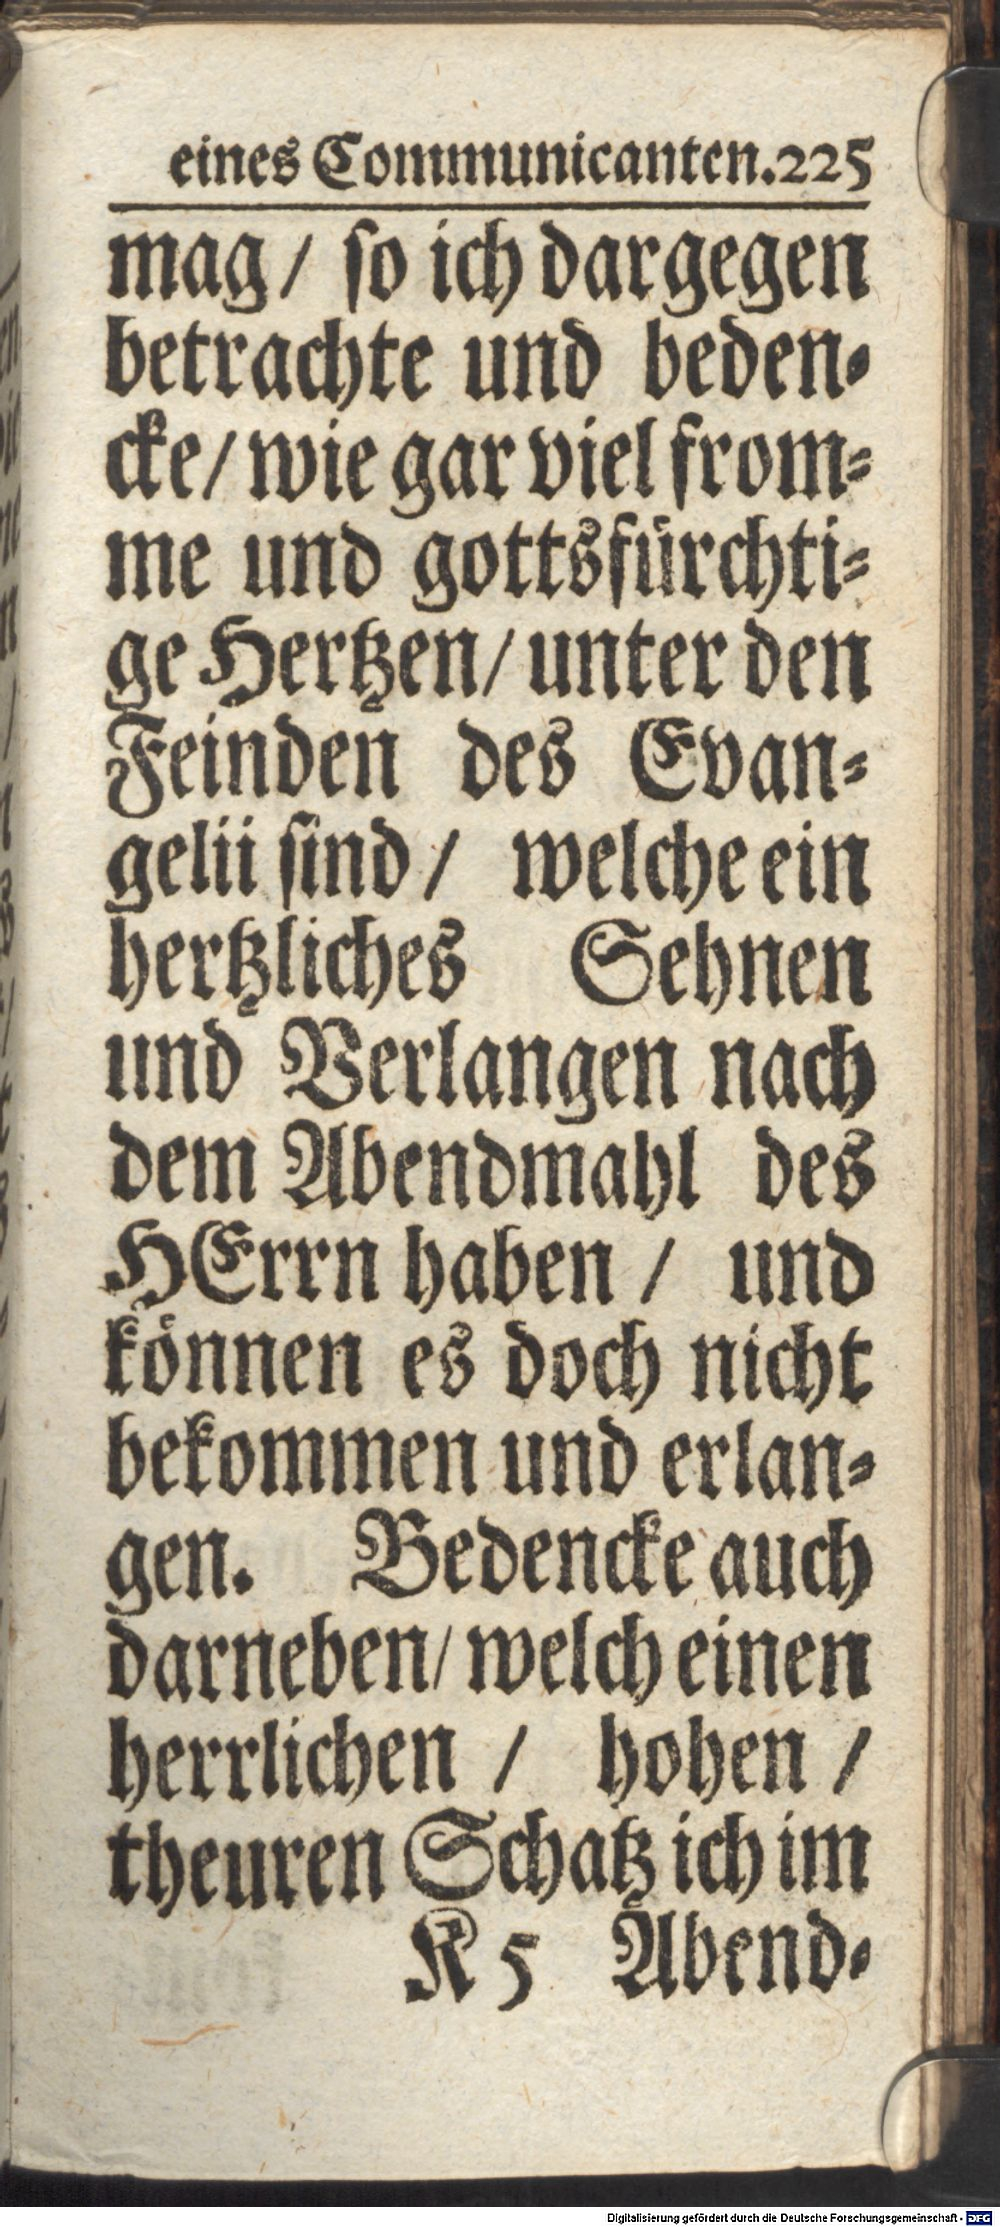 eines Communicanten. 225
mag/ so ich dargegen
betrachte und beden-
cke/ wie gar viel from-
me und gottsfürchti-
ge Hertzen/ unter den
Feinden des Evan-
gelii sind/ welche ein
hertzliches Sehnen
und Verlangen nach
dem Abendmahl des
HErrn haben / und
können es doch nicht
bekommen und erlan-
gen. Bedencke auch
darneben/ welch einen
herrlichen / hohen /
theuren Schatz ich im
K 5 Abend-
Digitalisierung gefördert durch die Deutsche Forschungsgemeinschaft - DFG